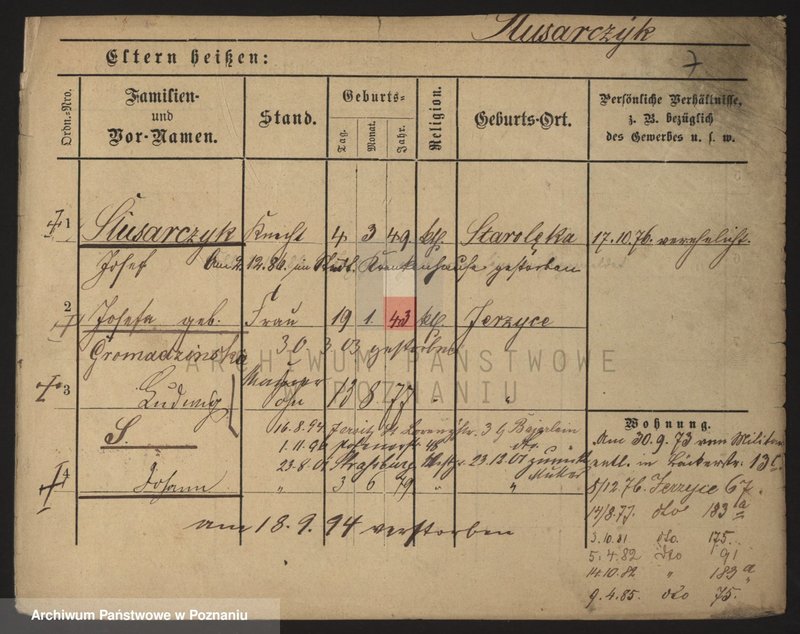 Ślusarczyk
7
Eltern heißen:
Ordn.-Nro.
Familien-
und
Vor-Namen.
Stand.
Geburts-
Tag.
Monat.
Jahr.
Religion.
Geburts-Ort.
Persönliche Verhältnisse,
z. B. bezüglich
des Gewerbes u. s. w.
1 Ślusarczyk Knecht 4 3 49 kth. Starolęka 17.10.76. verehelicht.
Josef Am 2.12.86. im Städt. Krankenhause gestorben
2 Josefa geb. Frau 19 1. 43 kth. Jerzyce
Gromadzinska 30. 3 03 gestorben
ARCHIWUM PAŃSTWOWE
W POZNANIU
3 Ludwig 13 8 77 " "
S.
16.8.94 Jersitz
1.11.96
23.8.01 Strassburg 23.12.01 zurück
Mutter
4 Johann " 3 6 79 " "
am 18.9.94 verstorben
Wohnung.
Am 30.9.73 vom Militär
entl. in Bäckerstr. 13c.
8/12.76. Jerzyce 67.
14/8.77. dto 183a
3.10.81 dto. 175.
5.4.82 dto 91
14.10.82 " 183a
9.4.85. dto 75.
Archiwum Państwowe w Poznaniu